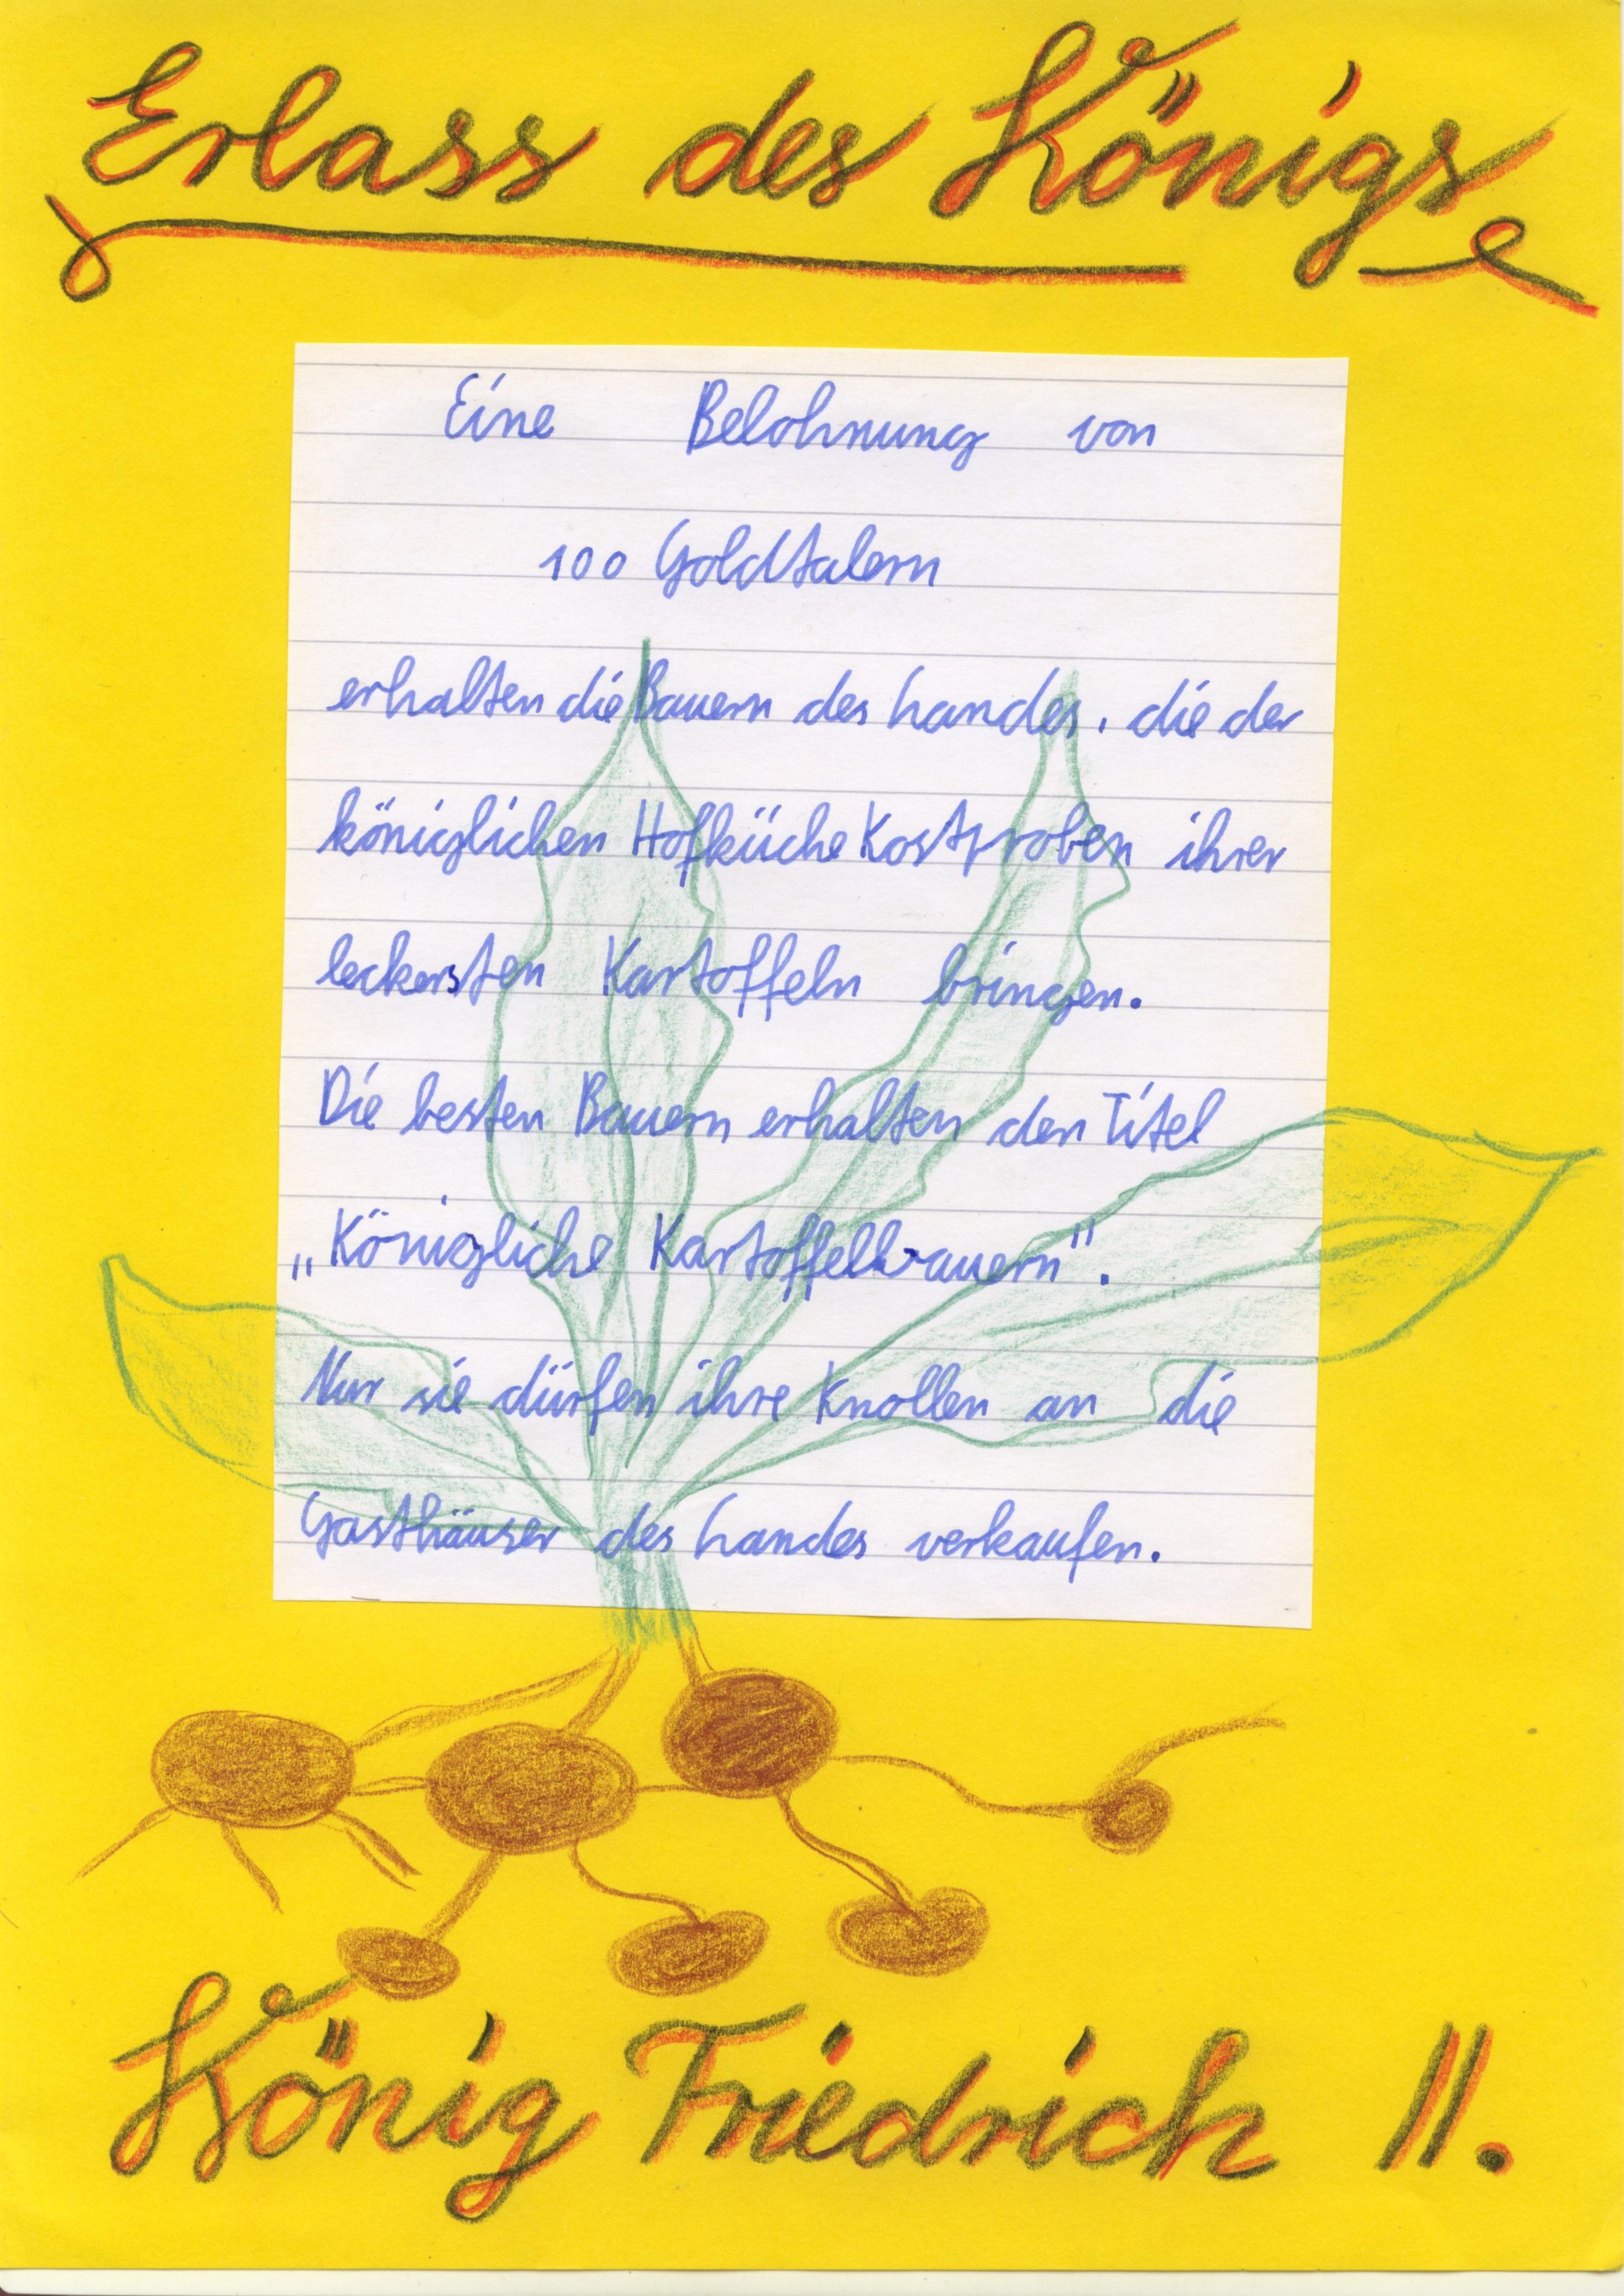 Erlass des Königs
Eine Belohnung von
100 Goldtalern
erhalten die Bauern des Landes, die der
königlichen Hofküche Kostproben ihrer
leckersten Kartoffeln bringen.
Die besten Bauern erhalten den Titel
„Königliche Kartoffelbauern".
Nur sie dürfen ihre Knollen an die
Gasthäuser des Landes verkaufen.
König Friedrich II.